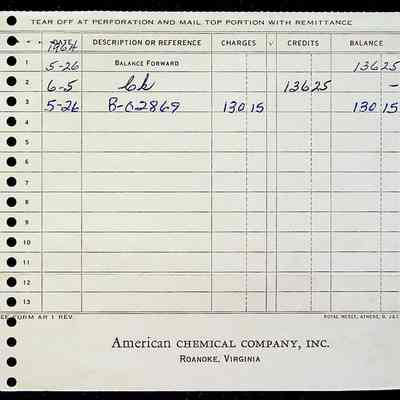 TEAR OFF AT PERFORATION AND MAIL TOP PORTION WITH REMITTANCE
DATE DESCRIPTION OR REFERENCE CHARGES √ CREDITS BALANCE
1964
1 5-26 BALANCE FORWARD 136 25
2 6-5 Ck 136 25 —
3 5-26 B-02869 130 15 130 15
4
5
6
7
8
9
10
11
12
13
FORM AR 1 REV. ROYAL MCBEE, ATHENS, O.
American CHEMICAL COMPANY, INC.
ROANOKE, VIRGINIA